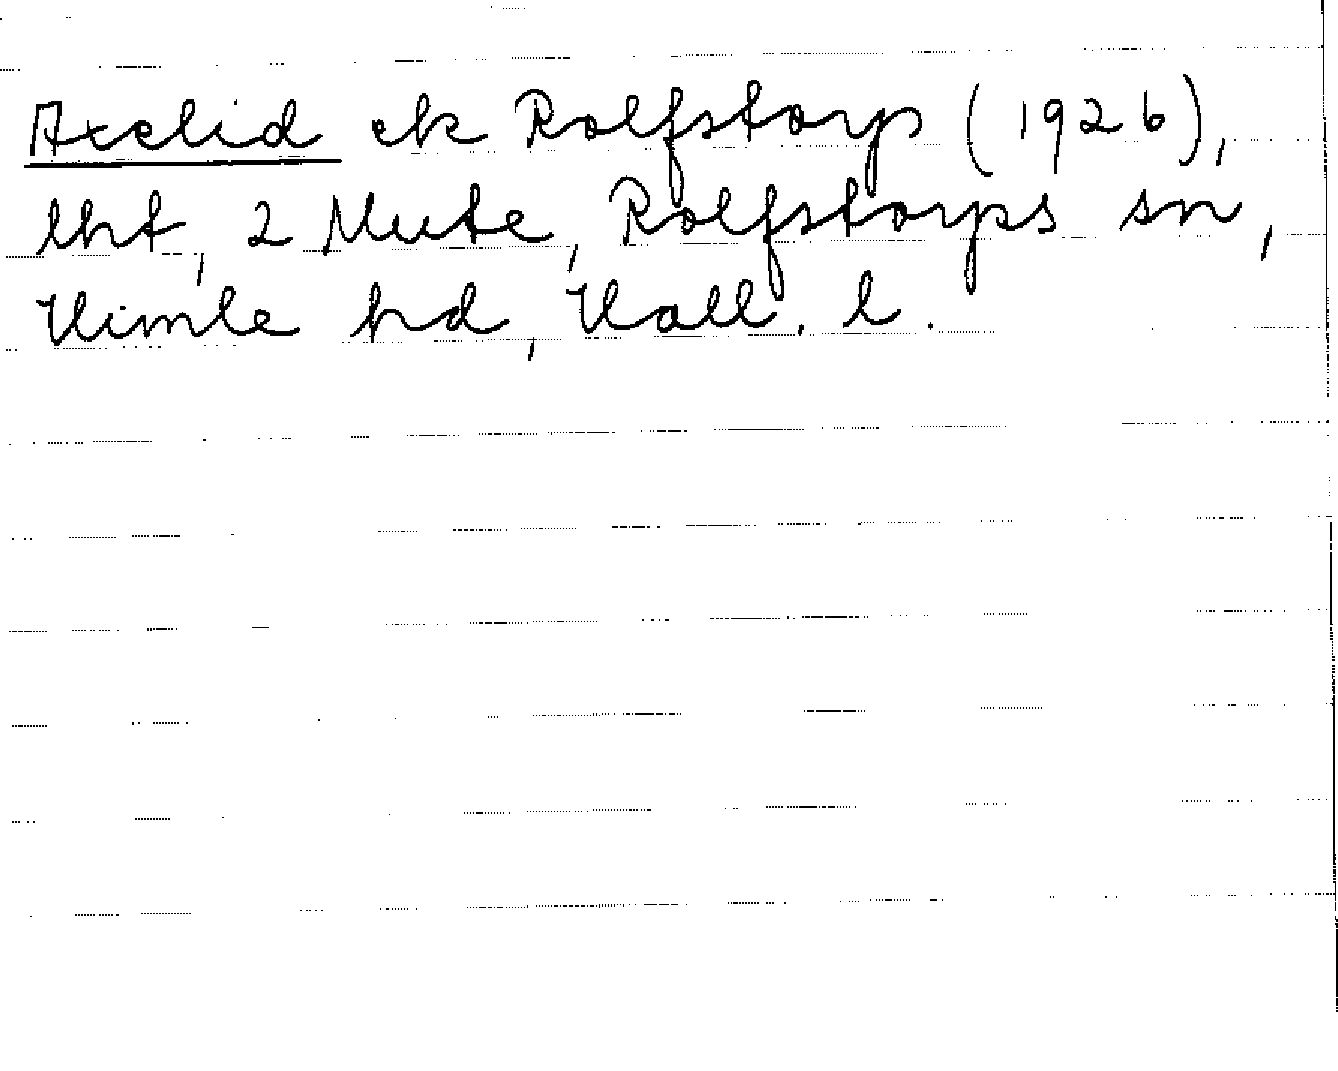 Axelid ek Rolfstorp (1926),
lht, 2 Mute, Rolfstorps sn,
Himle hd, Hall. l.